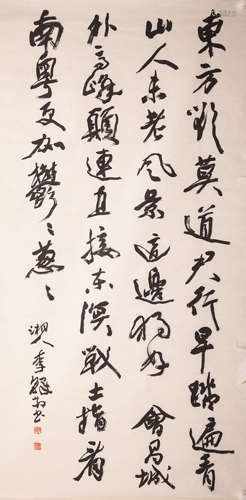 東方欲莫道君行早踏遍青
山人未老風景這邊獨好會昌城
外高峰顛連直接东溟戰士指看
南粤更加鬱〻葱〻
李鐸书